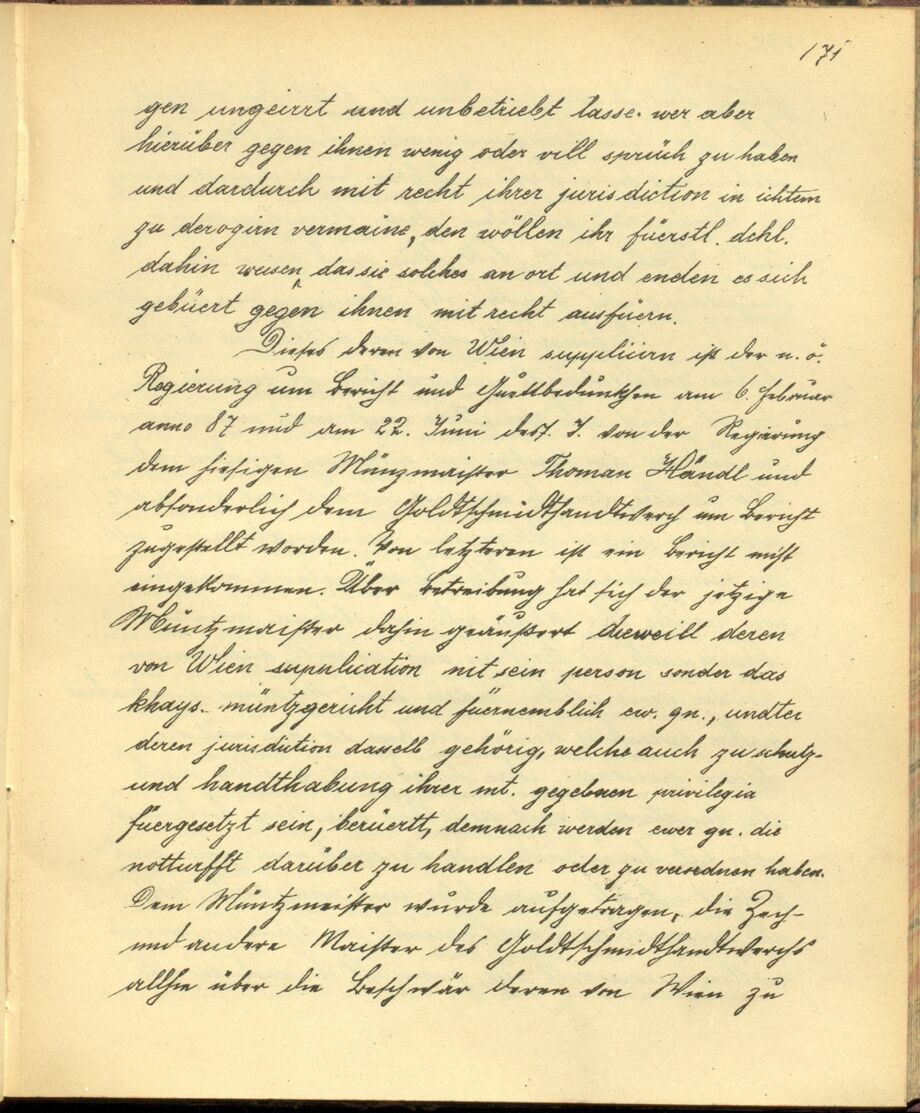 171
gen ungeirrt und unbetriebt lasse. wer aber
hierüber gegen ihnen wenig oder vill sprüch zu haben
und dardurch mit recht ihrer jurisdiction in ichtem
zu derogirn vermaine, den wöllen ihr fürstl. dchl.
dahin weisen, das sie solches an ort und enden es sich
gebüert gegen ihnen mit recht ausfüern.
Dieses deren von Wien suppliciern ist der n. ö.
Regierung um Bericht und Guettbedunkhen am 6. Februar
anno 87 und am 22. Juni desf. J. von der Regierung
dem hiesigen Münzmaister Thoman Händl und
absonderlich dem Goldtschmidthandtwerch um Bericht
zugestellt worden. Von letzteren ist ein Bericht nicht
eingekommen. Über Betreibung hat sich der jetzige
Müntzmaister dahin geäußert dieweill deren
von Wien supplication nit sein person sonder das
khays. müntzgericht und füernemblich ew. gn., undter
deren jurisdiction dasselb gehörig, welche auch zu schutz-
und handthabung ihrer mt. gegebnen privilegia
füergesetzt sein, berüertt, demnach werden ewer gn. die
notturfft darüber zu handlen oder zu verordnen haben.
Dem Müntzmeister wurde aufgetragen, die Zech-
und andere Maister des Goldtschmidthandtwerchs
allhie über die Beschwär deren von Wien zu